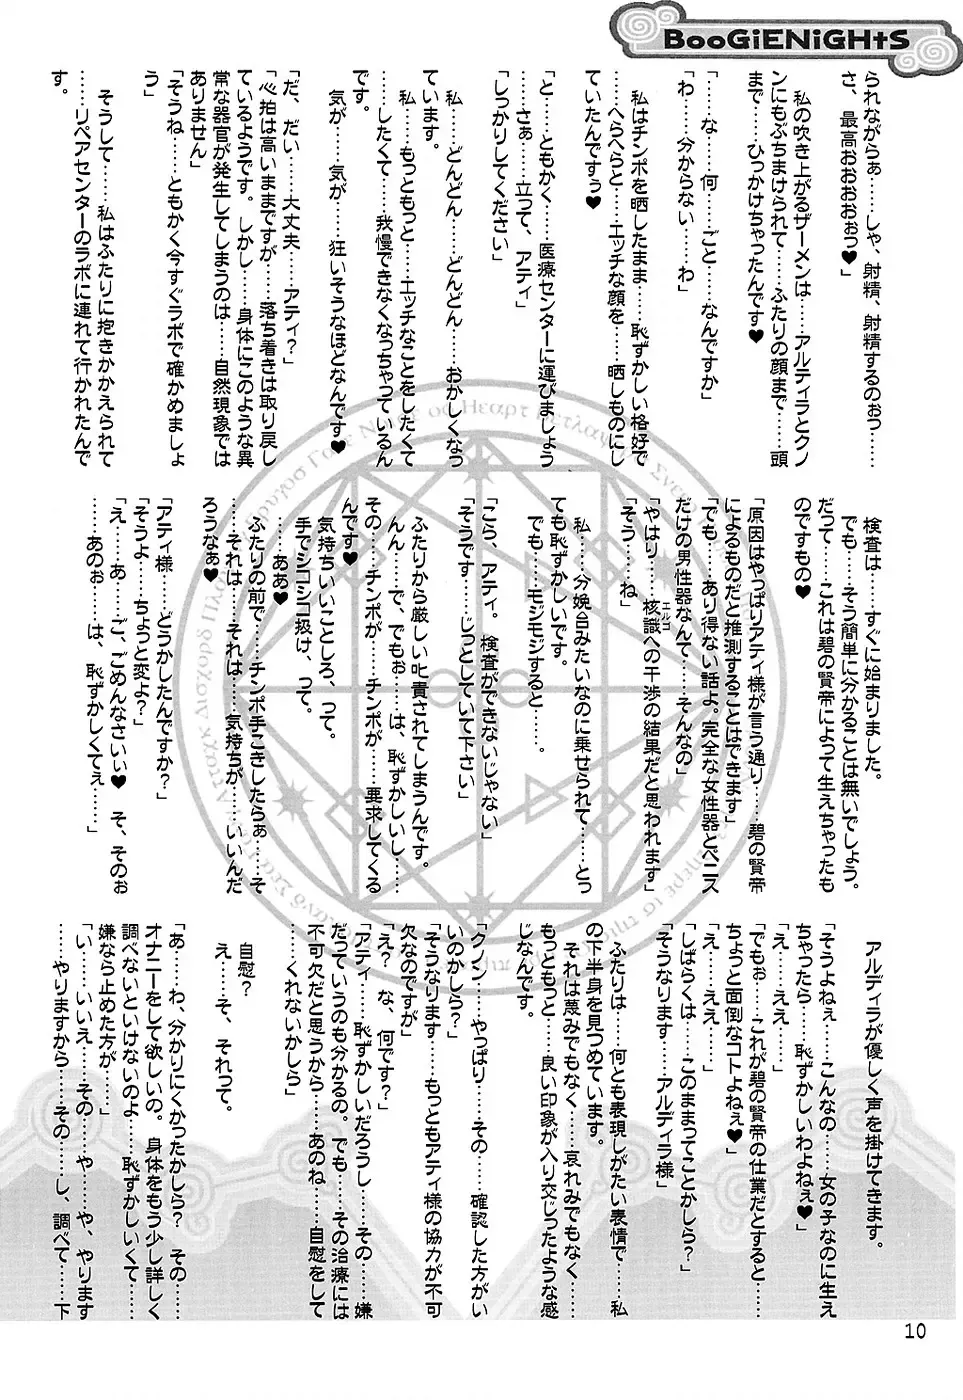 BooGiENiGHtS
られながらぁ……しゃ、射精、射精するのぉっ……
さ、最高おおおおぉっ♥」
　私の吹き上がるザーメンは……アルディラとクノ
ンにもぶちまけられて……ふたりの顔まで……頭
まで……ひっかけちゃったんです♥
「……な……何……ごと……なんですか」
「わ……分からない……わ」
　私はチンポを晒したまま……恥ずかしい格好で
……へらへらと……エッチな顔を……晒しものにし
ていたんですぅ♥
「と……ともかく……医療センターに運びましょう
……さぁ……立って、アティ」
「しっかりしてください」
　私……どんどん……どんどん……おかしくなっ
ています。
　私……もっともっと……エッチなことをしたくて
……したくて……我慢できなくなっちゃっているん
です。
　気が……気が……狂いそうなほどなんです♥
「だ、だい……大丈夫……アティ？」
「心拍は高いままですが……落ち着きは取り戻し
ているようです。しかし……身体にこのような異
常な器官が発生してしまうのは……自然現象では
ありません」
「そうね……ともかく今すぐラボで確かめましょ
う」
　そうして……私はふたりに抱きかかえられて
……リペアセンターのラボに連れて行かれたんで
す。
　検査は……すぐに始まりました。
　でも……そう簡単に分かることは無いでしょう。
だって……これは碧の賢帝によって生えちゃったも
のですもの♥
「原因はやっぱりアティ様が言う通り……碧の賢帝
によるものだと推測することはできます」
「でも……あり得ない話よ。完全な女性器とペニス
だけの男性器なんて……そんなの」
「やはり……核識への干渉の結果だと思われます」
エルゴ
「そう……ね」
　私……分娩台みたいなのに乗せられて……とっ
ても恥ずかしいです。
　でも……モジモジすると……。
「こら、アティ。検査ができないじゃない」
「そうです……じっとしていて下さい」
　ふたりから厳しい叱責されてしまうんです。
　んん……で、でもぉ……は、恥ずかしいし……
その……チンポが……チンポが……要求してくる
んです♥
　気持ちいいことしろ、って。
　手でシコシコ扱け、って。
「……ああ♥
　ふたりの前で……チンポ手こきしたらぁ……そ
……それは……それは……気持ちが……いいんだ
ろうなぁ♥
「アティ様……どうかしたんですか？」
「そうよ……ちょっと変よ？」
「え……あ……ご、ごめんなさいぃ♥　そ、そのぉ
……あのぉ……は、恥ずかしくてぇ……」
　アルディラが優しく声を掛けてきます。
「そうよねぇ……こんなの……女の子なのに生え
ちゃったら……恥ずかしいわよねぇ♥」
「え……ええ……」
「でもぉ……これが碧の賢帝の仕業だとすると……
ちょっと面倒なコトよねぇ♥」
「え……ええ……」
「しばらくは……このままってことかしら？」
「そうなります……アルディラ様」
　ふたりは……何とも表現しがたい表情で……私
の下半身を見つめています。
　それは蔑みでもなく……哀れみでもなく……
もっともっと……良い印象が入り交じったような感
じなんです。
「クノン……やっぱり……その……確認した方がい
いのかしら？」
「そうなります……もっともアティ様の協力が不可
欠なのですが」
「え？　な、何です？」
「アティ……恥ずかしいだろうし……その……嫌
だっていうのも分かるの。でも……その治療には
不可欠だと思うから……あのね……自慰をして
……くれないかしら」
　自慰？
　え……そ、それって。
「あ……わ、分かりにくかったかしら？　その……
オナニーをして欲しいの。身体をもう少し詳しく
調べないといけないのよ……恥ずかしくて……
嫌なら止めた方が……」
「い……いいえ……その……や……や、やります
……やりますから……その……し、調べて……下
10